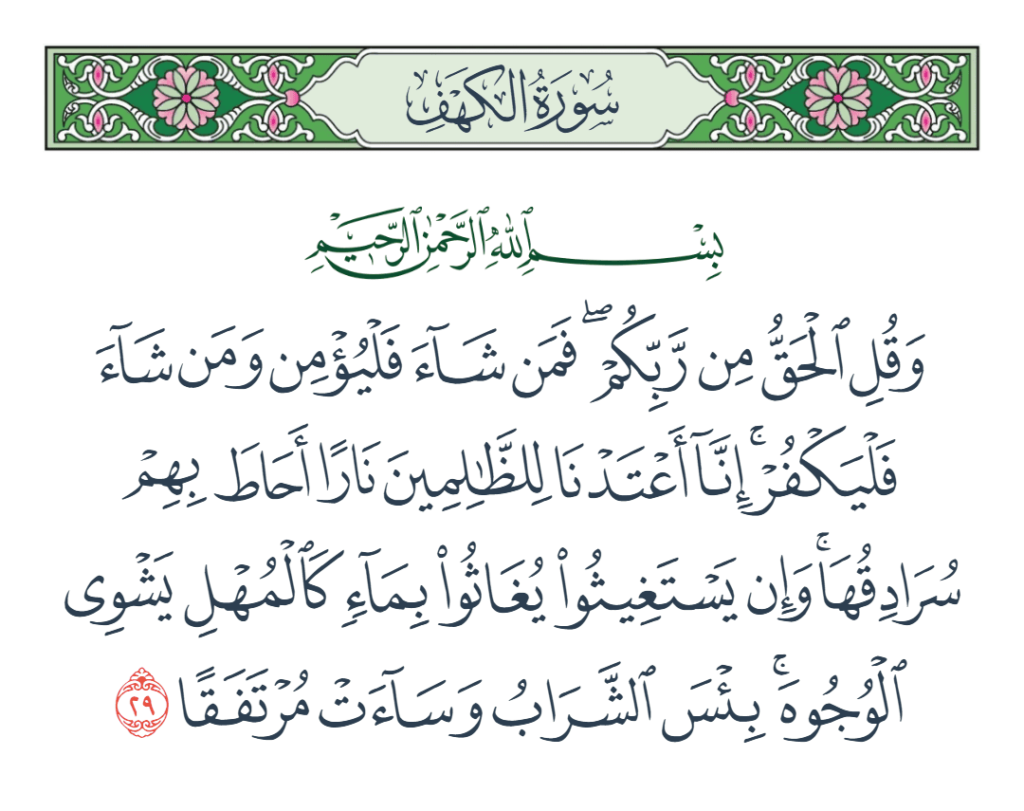 سُورَةُ الكَهۡفِ
بِسۡمِ ٱللَّهِ ٱلرَّحۡمَٰنِ ٱلرَّحِيمِ
وَقُلِ ٱلۡحَقُّ مِن رَّبِّكُمۡۖ فَمَن شَآءَ فَلۡيُؤۡمِن وَمَن شَآءَ
فَلۡيَكۡفُرۡۚ إِنَّآ أَعۡتَدۡنَا لِلظَّٰلِمِينَ نَارًا أَحَاطَ بِهِمۡ
سُرَادِقُهَاۚ وَإِن يَسۡتَغِيثُواْ يُغَاثُواْ بِمَآءٖ كَٱلۡمُهۡلِ يَشۡوِي
ٱلۡوُجُوهَۚ بِئۡسَ ٱلشَّرَابُ وَسَآءَتۡ مُرۡتَفَقًا ٢٩